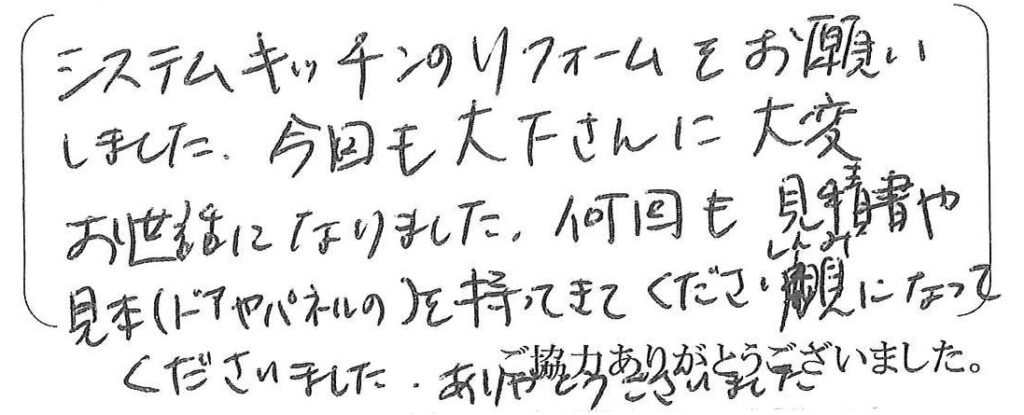 システムキッチンのリフォームをお願い
しました。今回も大下さんに大変
お世話になりました。何回も見積書や
見本(ドアやパネルの)を持ってきてください親身になって
くださいました。ありがとうございました
ご協力ありがとうございました。